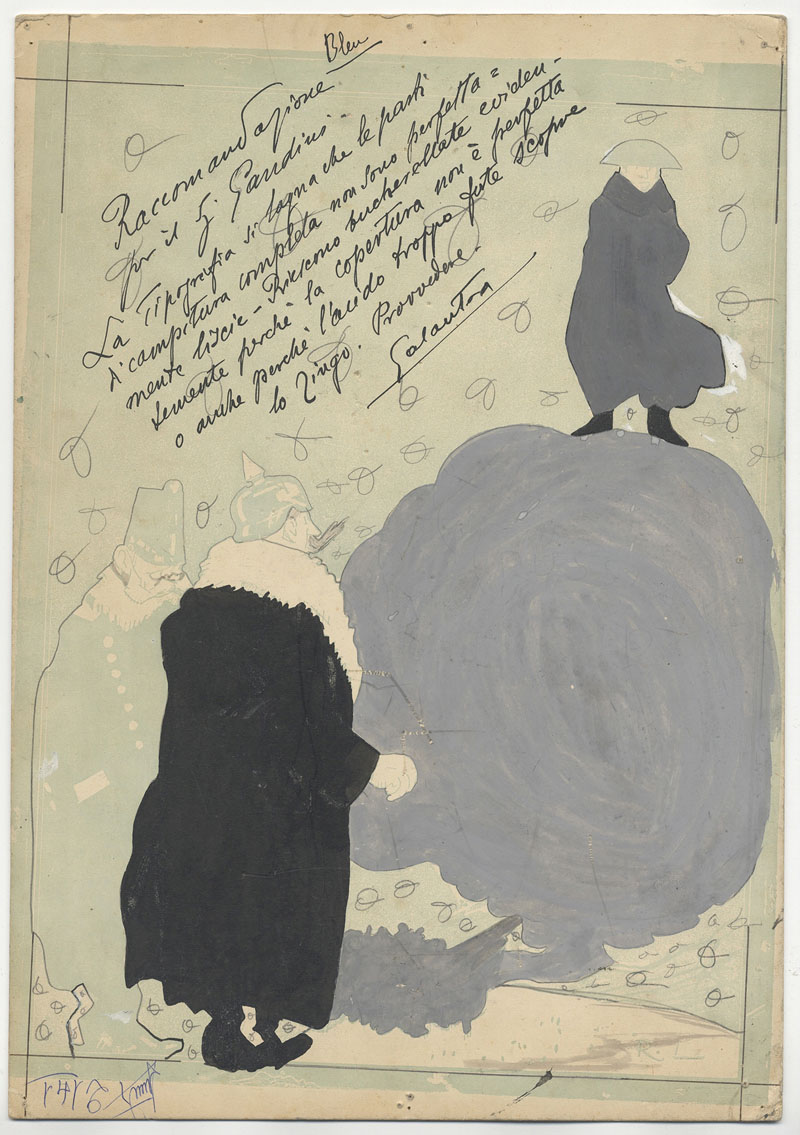 Bleu
Raccomandazione
per il S. Gandini -
La Tipografia si lagna che le parti
a campitura completa non sono perfetta=
mente liscie - Riescono bucherellate eviden-
temente perchè la copertura non è perfetta
o anche perchè l'acido troppo forte scopre
lo zingo. Provvedere.
Galantara
R. L.